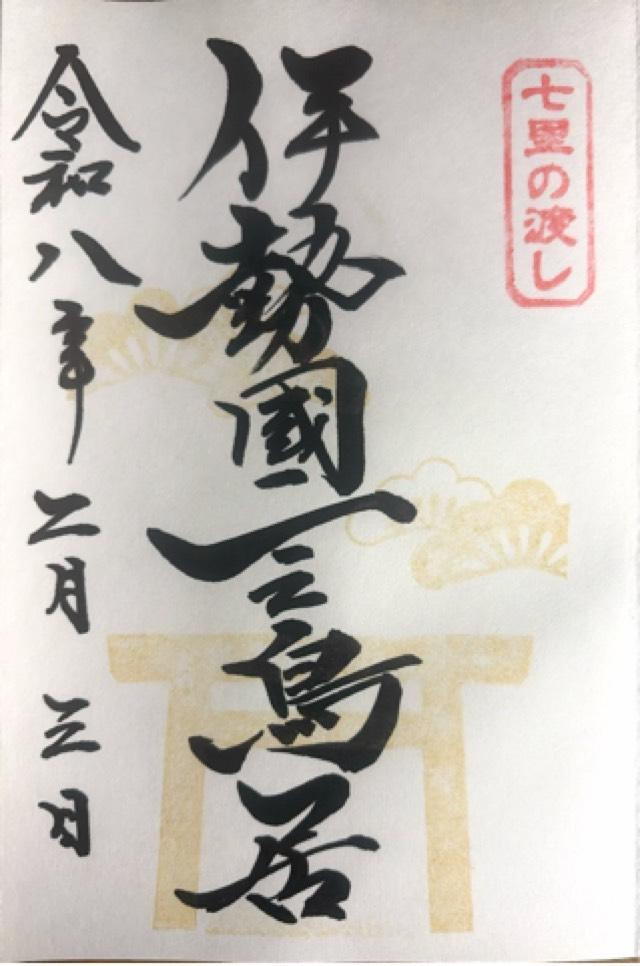 七里の渡し
伊勢國一之鳥居
令和八年二月三日